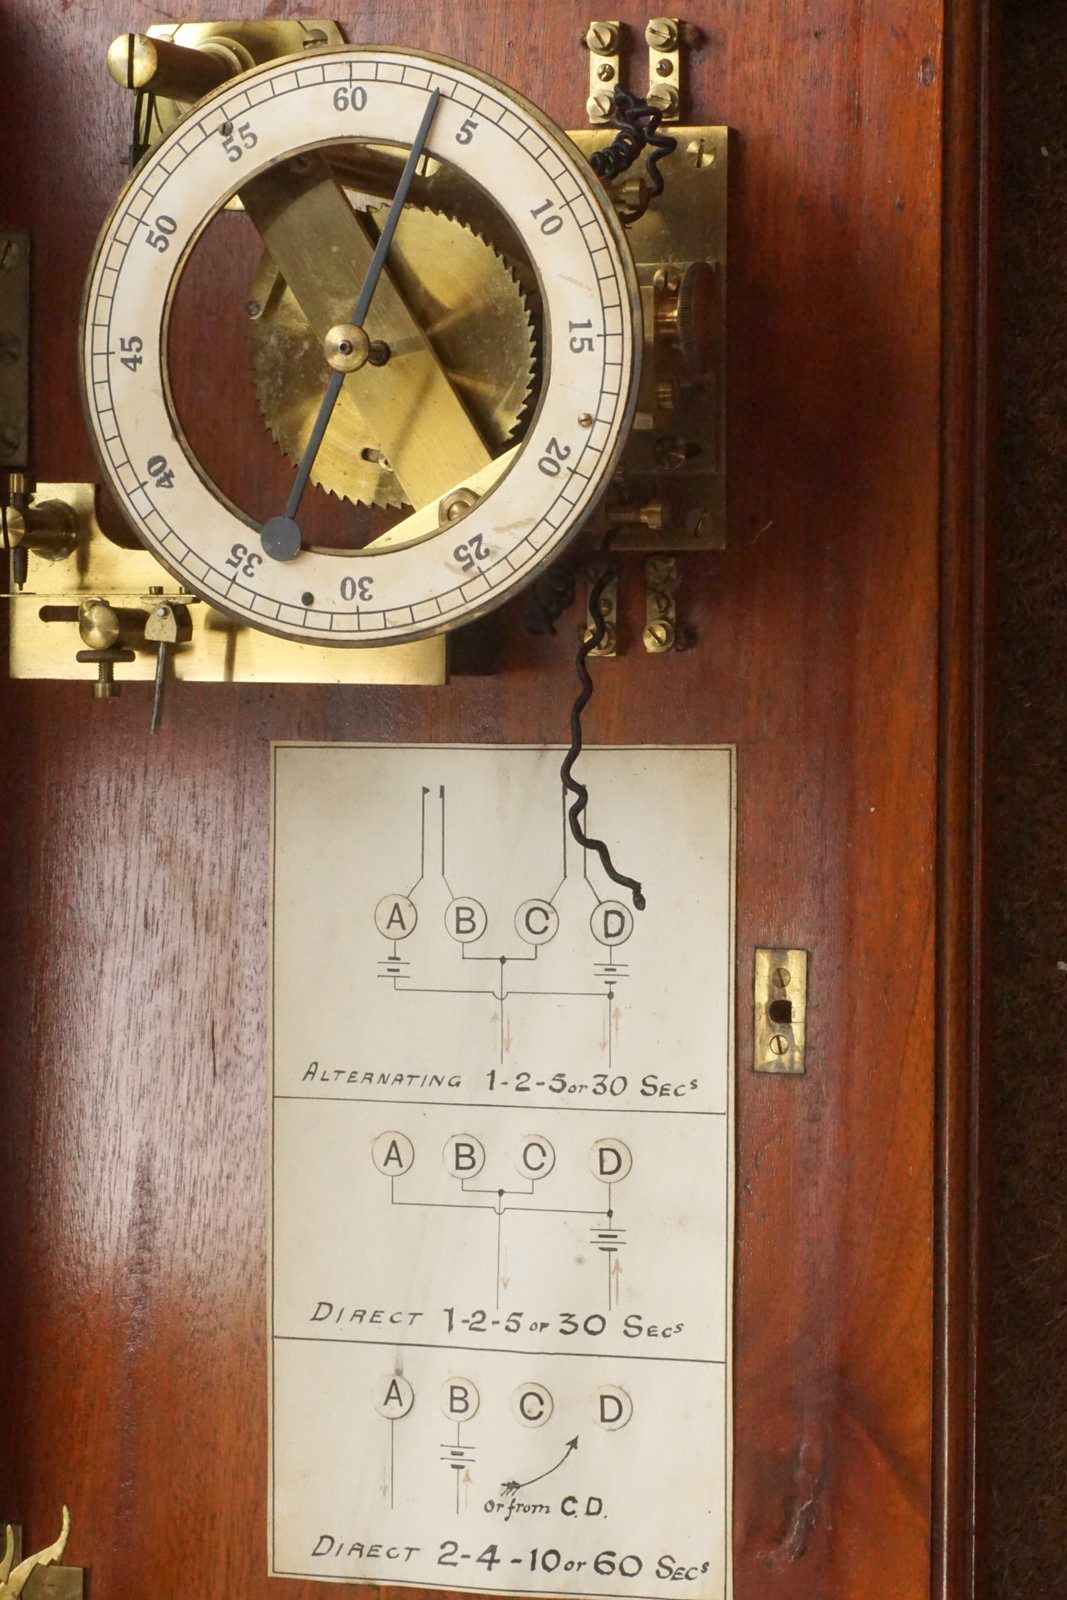 60
5
10
15
20
25
30
35
40
45
50
55
A B C D
ALTERNATING 1-2-5 or 30 SECS
A B C D
DIRECT 1-2-5 or 30 SECS
A B C D
or from C.D.
DIRECT 2-4-10 or 60 SECS